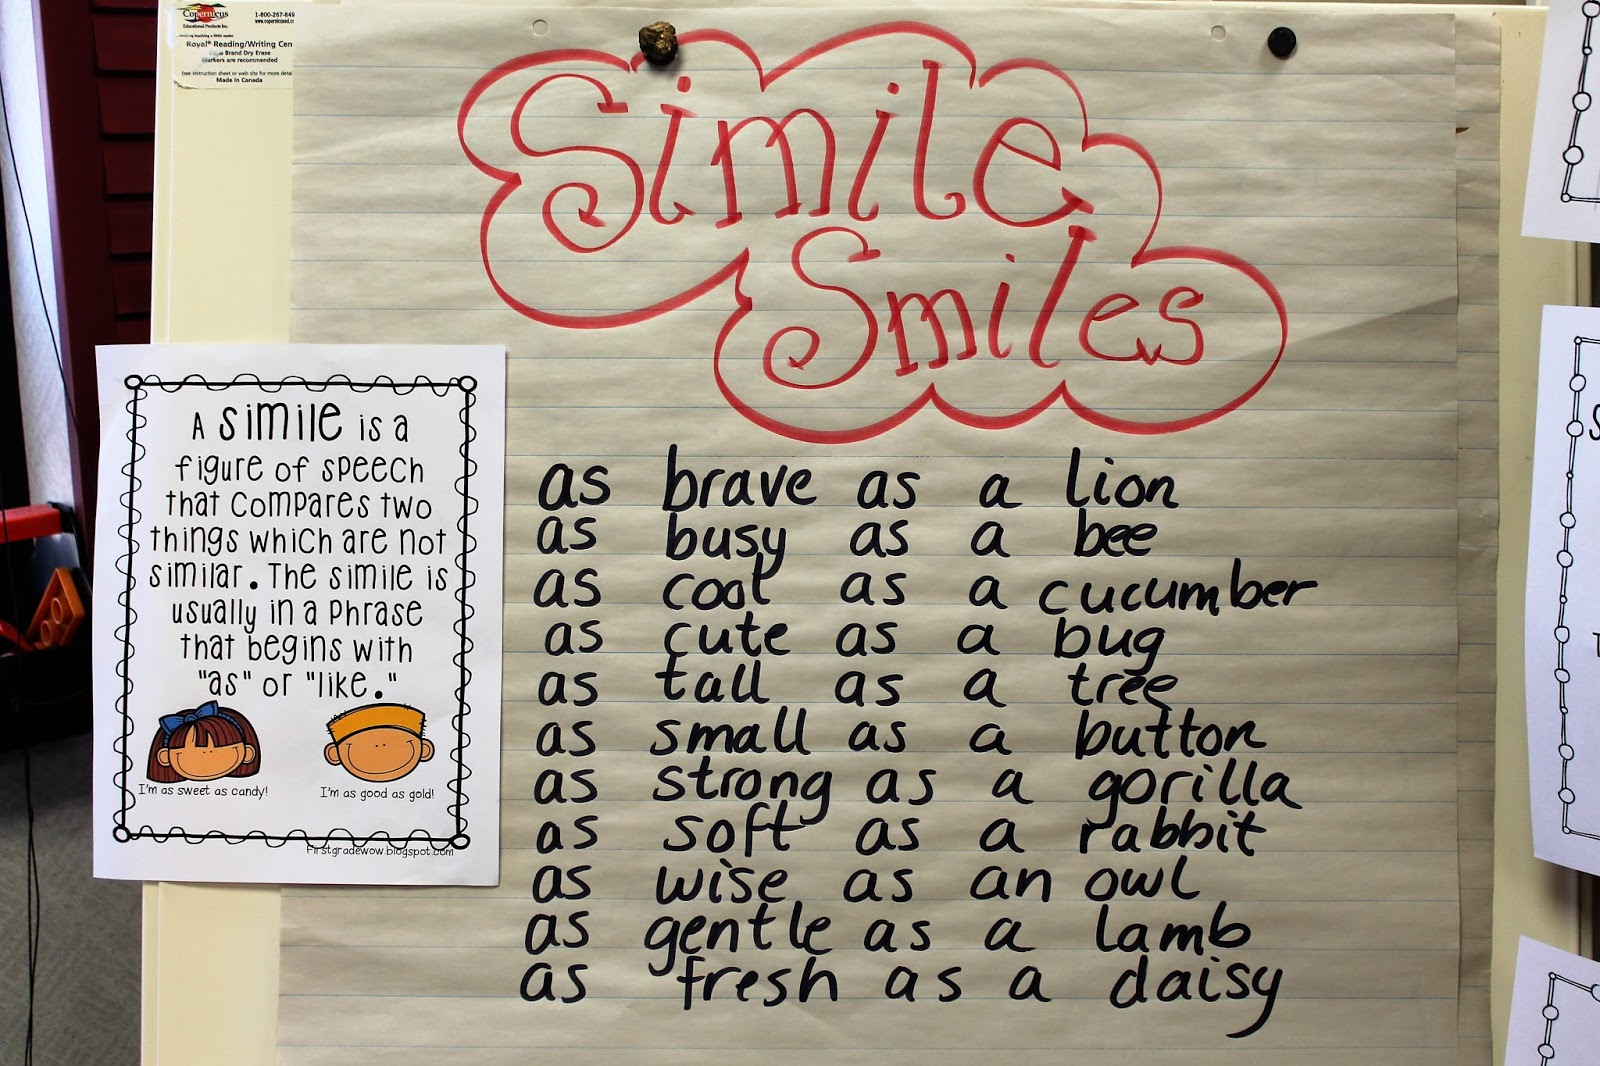 Copernicus
Educational Products Inc.
1-800-267-849
www.copernicused.cc
Royal® Reading/Writing Cen
Brand Dry Erase
Markers are recommended
(see instruction sheet or web site for more detai
Made in Canada
Simile
Smiles
A simile is a
figure of speech
that compares two
things which are not
similar. The simile is
usually in a phrase
that begins with
"as" or "like."
I'm as sweet as candy!
I'm as good as gold!
firstgradewow.blogspot.com
as brave as a lion
as busy as a bee
as cool as a cucumber
as cute as a bug
as tall as a tree
as small as a button
as strong as a gorilla
as soft as a rabbit
as wise as an owl
as gentle as a lamb
as fresh as a daisy